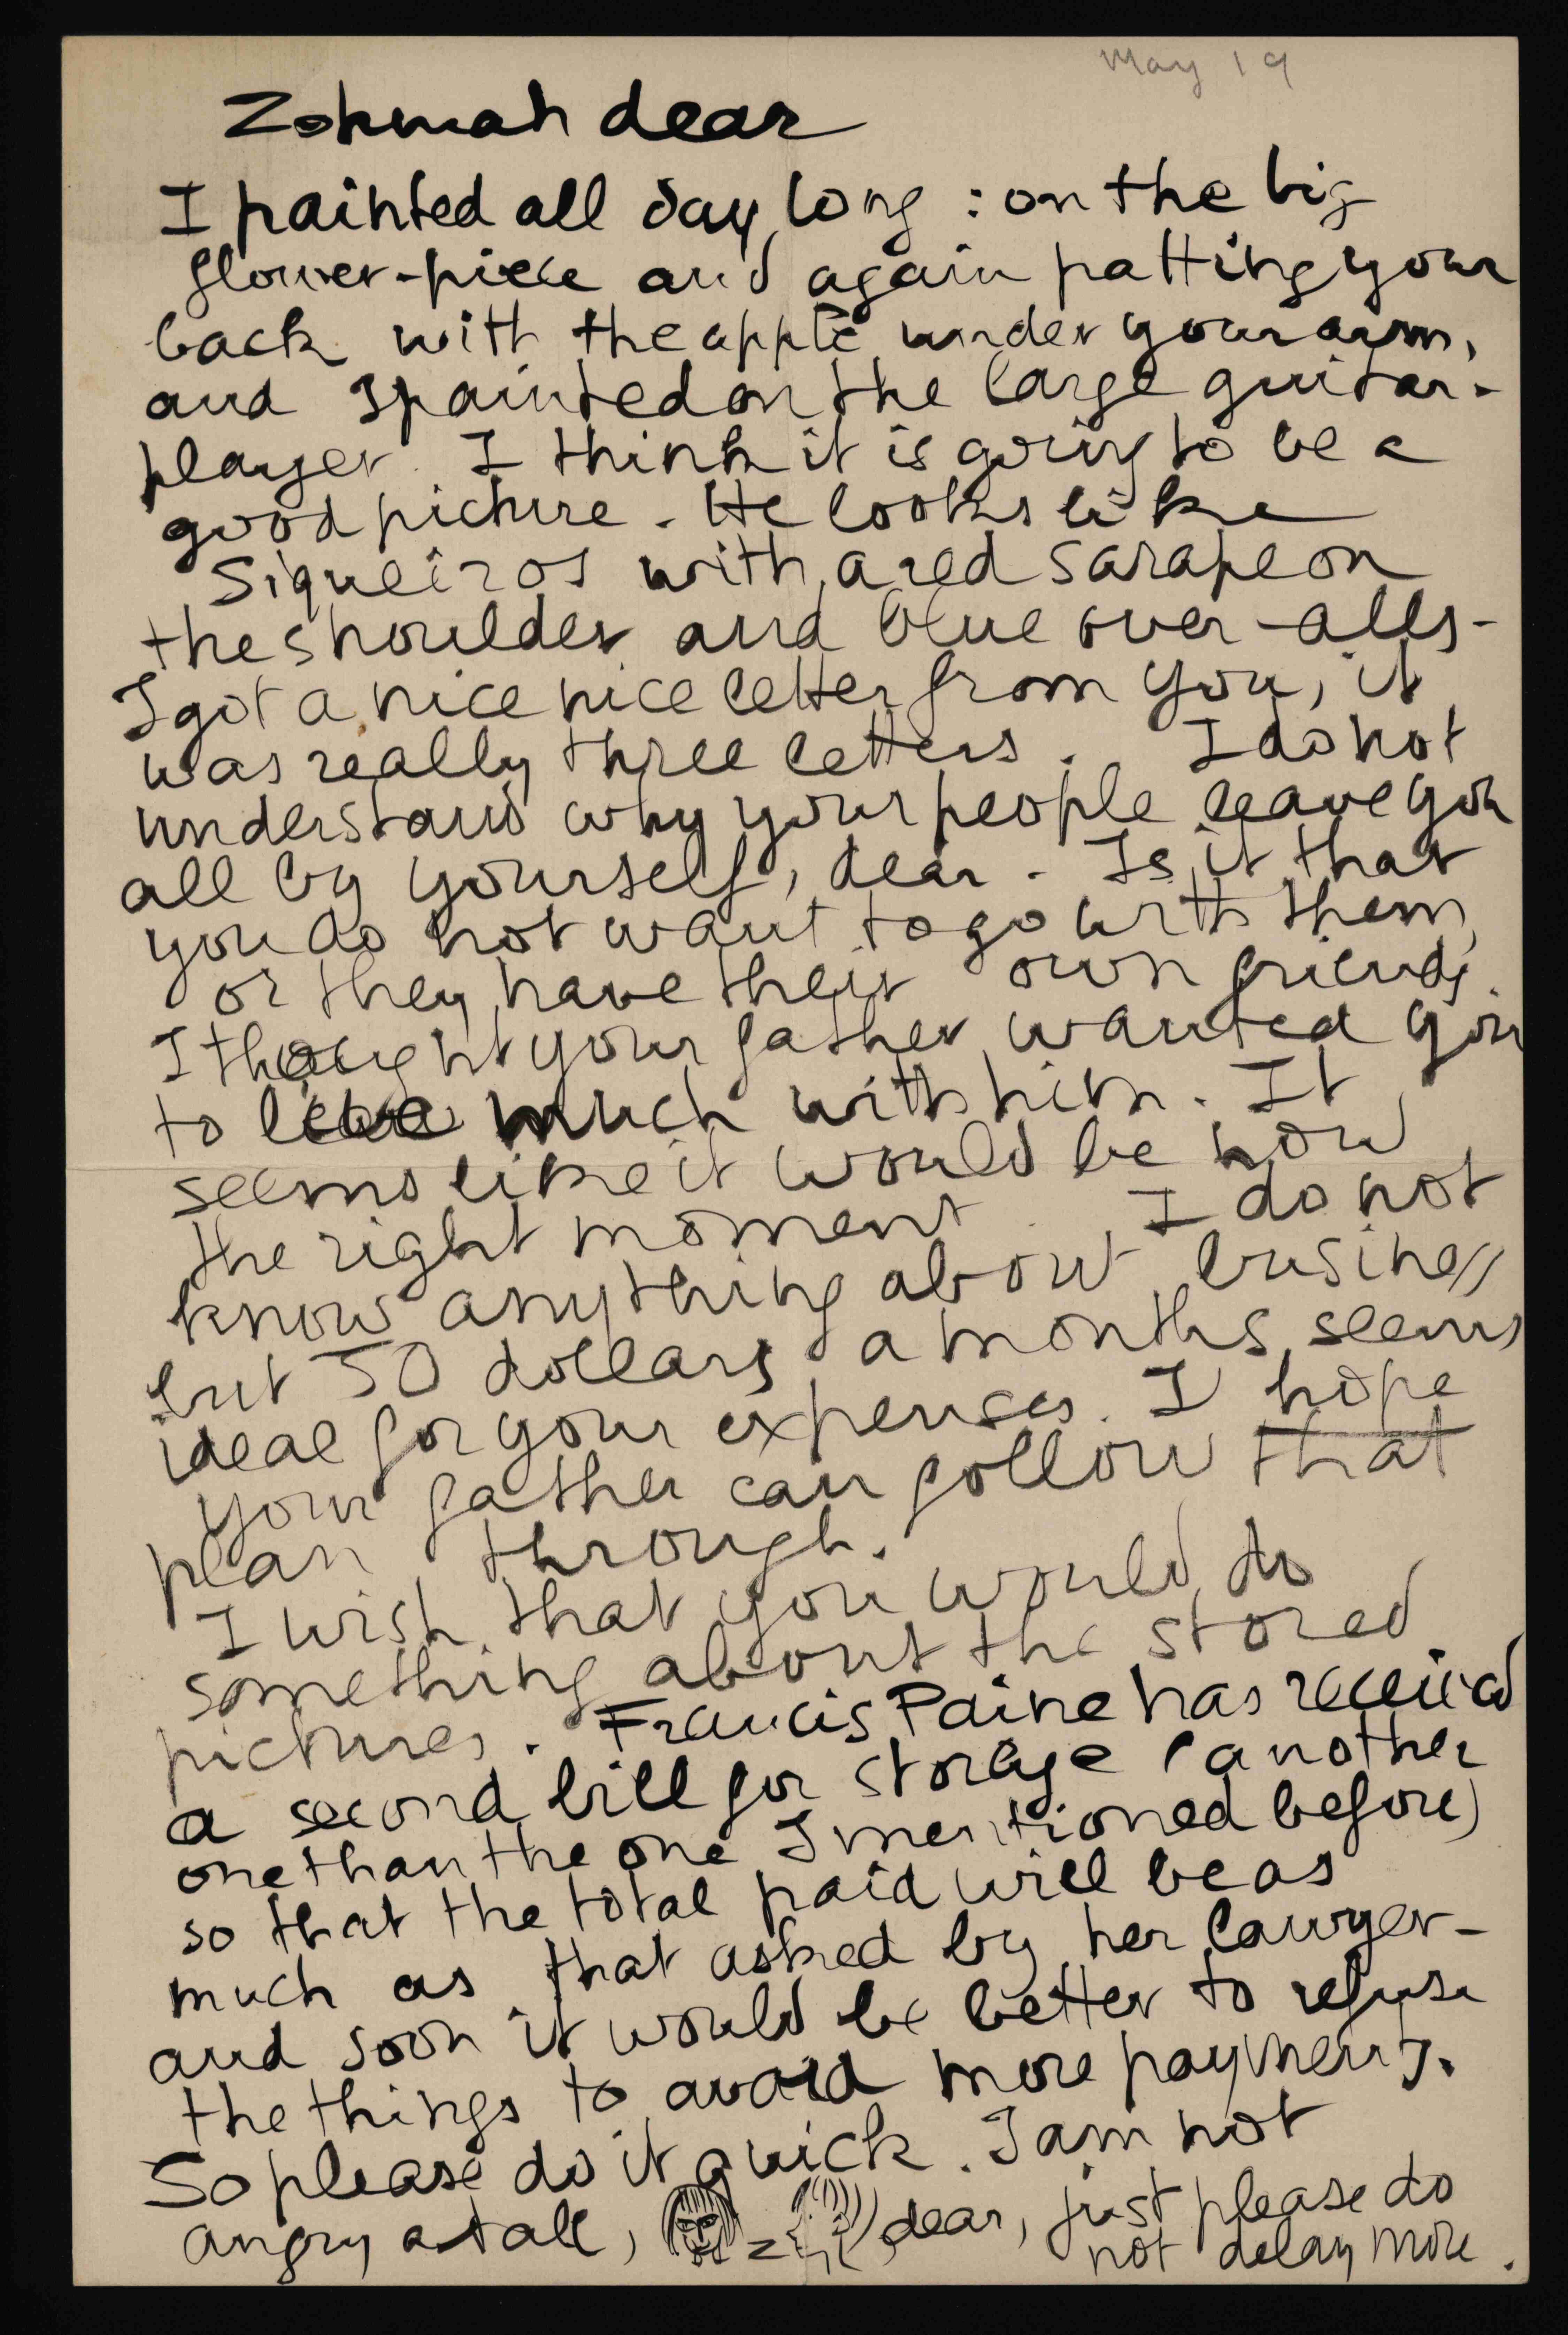 May 19
Zohmah dear
I painted all day long : on the big
flower-piece and again patting your
back with the apple under your arm,
and I painted on the large guitar-
player. I think it is going to be a
good picture. He looks like
Siqueiros with a red sarape on
the shoulder and blue over-alls-
I got a nice nice letter from you, it
was really three letters. I do not
understand why your people leave you
all by yourself, dear. Is it that
you do not want to go with them,
or they have their own friends.
I thought your father wanted you
to much with him. It
seems like it would be now
the right moment. I do not
know anything about business
but 50 dollars a months seems
ideal for your expenses. I hope
your father can follow that
plan through.
I wish that you would do
something about the stored
pictures. Francis Paine has received
a second bill for storage (another
one than the one I mentioned before)
so that the total paid will be as
much as that asked by her lawyer-
and soon it would be better to refuse
the things to avoid more payments.
So please do it quick. I am not
angry at all, dear, just please do
not delay more.